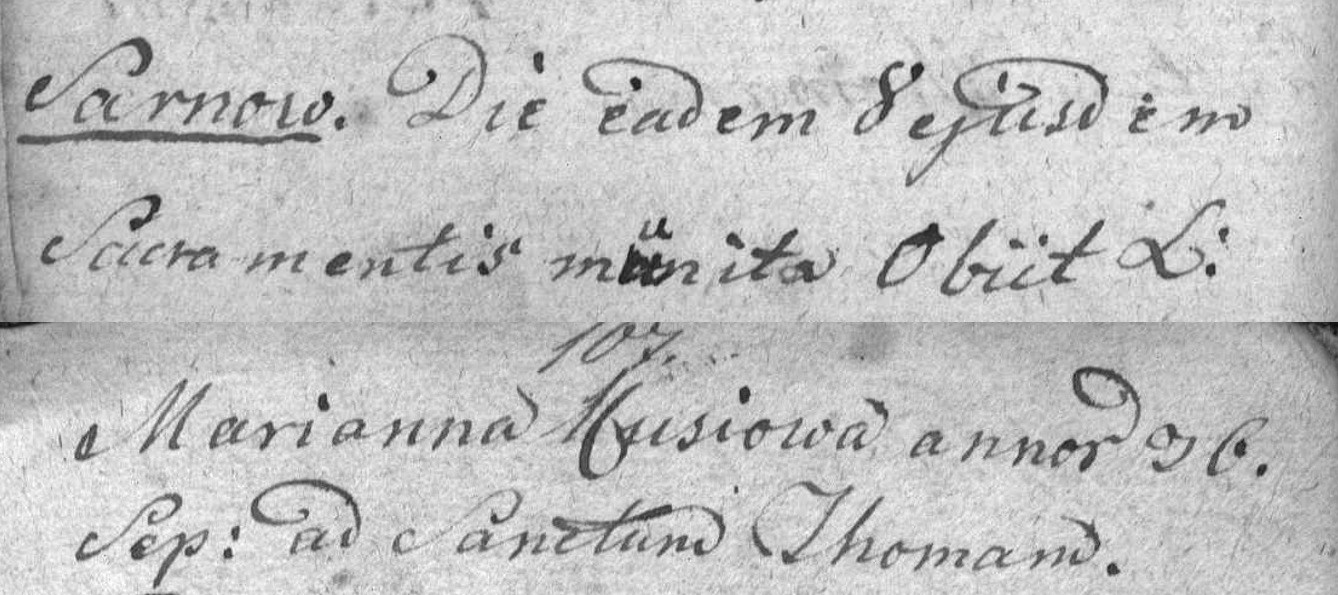 Sarnow. Die eadem 8 ejusdem
Sacramentis munita Obiit L:
107.
Marianna Kusiowa annor 36.
Sep: ad Sanctum Thomam.